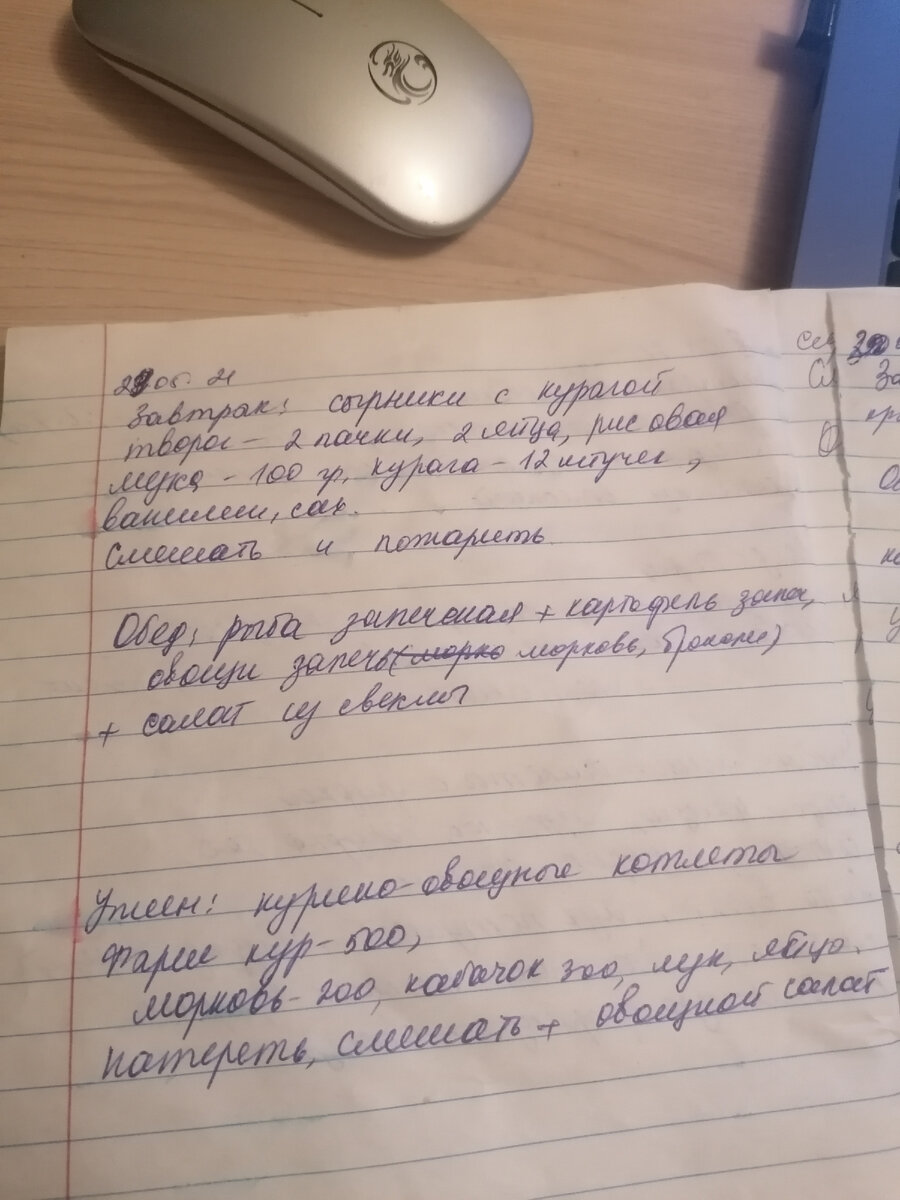 06. 21
Завтрак: сырники с курагой
творог - 2 пачки, 2 яйца, рисовая
мука - 100 гр, курага - 12 штучек,
ванилин, сах.
Смешать и пожарить
Обед: рыба запеченая + картофель запеч,
овощи запечь (морко морковь, броколи)
+ салат из свеклы
Ужин: курино-овощные котлеты
Фарш кур - 500,
морковь - 200, кабачок 300, лук, яйцо.
Натереть, смешать + овощной салат